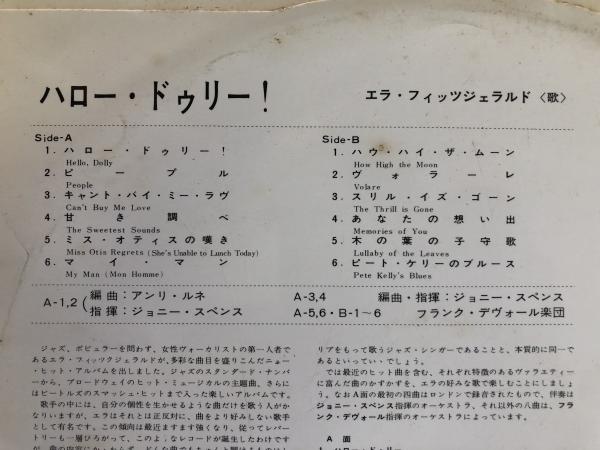 ハロー・ドゥリー！
エラ・フィッツジェラルド〈歌〉
Side-A
1. ハロー・ドゥリー！
Hello, Dolly
2. ピープル
People
3. キャント・バイ・ミー・ラヴ
Can't Buy Me Love
4. 甘き調べ
The Sweetest Sounds
5. ミス・オティスの嘆き
Miss Otis Regrets (She's Unable to Lunch Today)
6. マイ・マン
My Man (Mon Homme)
Side-B
1. ハウ・ハイ・ザ・ムーン
How High the Moon
2. ヴォラーレ
Volare
3. スリル・イズ・ゴーン
The Thrill is Gone
4. あなたの想い出
Memories of You
5. 木の葉の子守歌
Lullaby of the Leaves
6. ピート・ケリーのブルース
Pete Kelly's Blues
A-1,2 編曲：アンリ・ルネ
指揮：ジョニー・スペンス
A-3,4 編曲・指揮：ジョニー・スペンス
A-5,6・B-1～6 フランク・デヴォール楽団
ジャズ、ポピュラーを問わず、女性ヴォーカリストの第一人者で
あるエラ・フィッツジェラルドが、多彩な曲目を盛りこんだニュー
・ヒット・アルバムを出しました。ジャズのスタンダード・ナンバ
ーから、ブロードウェイのヒット・ミュージカルの主題曲、さらに
はビートルズのスマッシュ・ヒットまで入った楽しいアルバムです。
歌手の中には、自分の個性を生かせるような曲だけを歌う人がか
なりいますが、エラはそれとは正反対に、曲をより好みしない歌手
として有名です。この傾向は最近ますます強くなり、従ってレパー
トリーも一層ひろがって、このようなレコードが誕生したわけです
リアをもって歌うジャズ・シンガーであることと、本質的に同一で
あるといっていいでしょう。
では最近のヒット曲を含む、それぞれ特徴のあるヴァラエティー
に富んだ曲のかずかずを、エラの好みな歌で楽しむことにしましょ
う。なおA面の最初の四曲はロンドンで録音されたもので、伴奏は
ジョニー・スペンス指揮のオーケストラ、それ以外の八曲は、フラ
ンク・デヴォール指揮のオーケストラによっています。
A 面
1. ハロー・ドゥリー